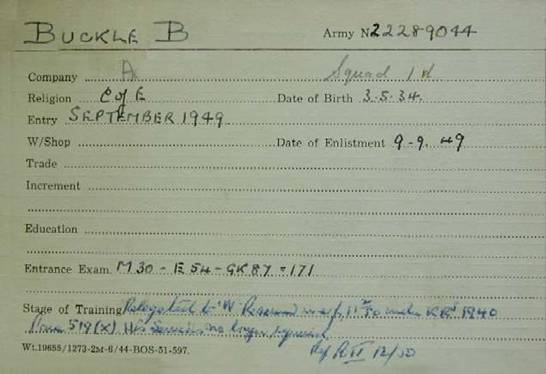 BUCKLE B Army No 22289044
Company A Squad 1
Religion C of E Date of Birth 3.5.34.
Entry SEPTEMBER 1949
W/Shop Date of Enlistment 9-9-49
Trade
Increment
Education
Entrance Exam. M30 - E54 - GK87 = 171
Stage of Training Relegated to W Reserve w.e.f. under KR 1940
Para 519(X) His services no longer required
Ref R II 12/50
Wt.19655/1273-2M-6/44-BOS-51-597.